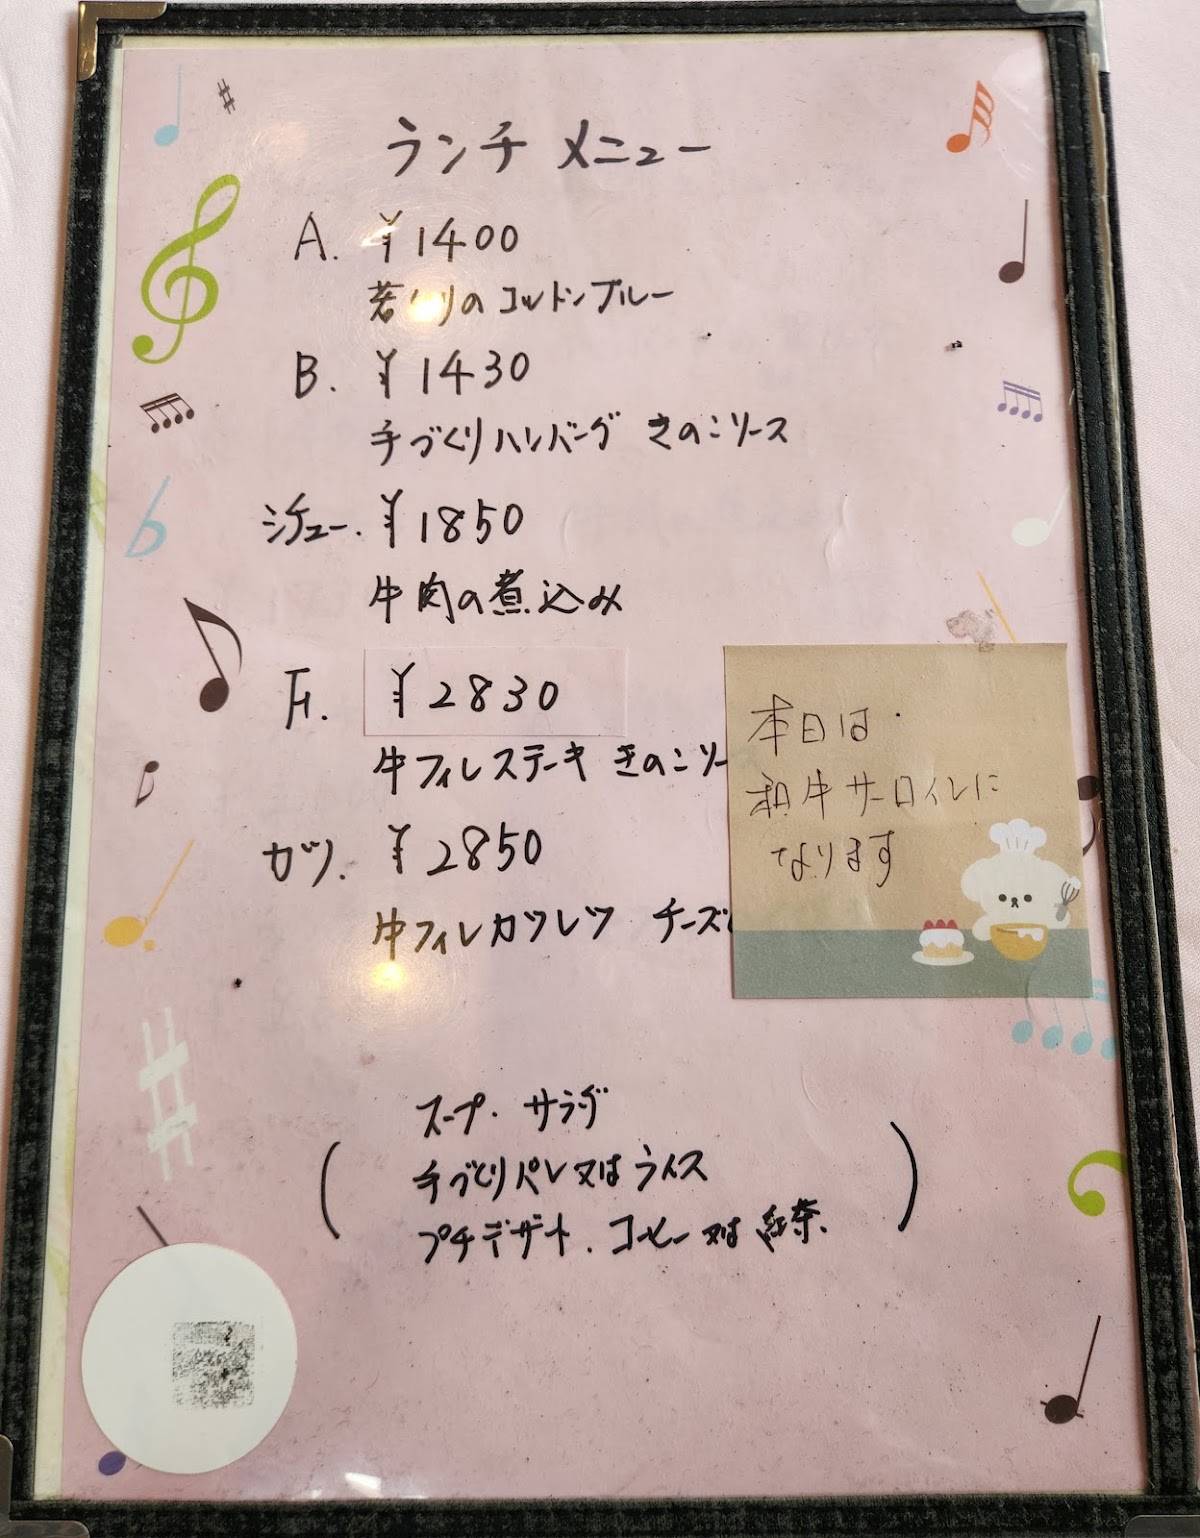 ランチ メニュー
A. ¥1400
若どりのコットンブルー
B. ¥1430
手づくりハンバーグ きのこソース
シチュー. ¥1850
牛肉の煮込み
¥2830
牛フィレステーキ きのこソー
カツ. ¥2850
牛フィレカツレツ チーズ
本日は
和牛サーロインに
なります
スープ. サラダ
(手づくりパン又はライス)
プチデザート. コーヒー又は紅茶.